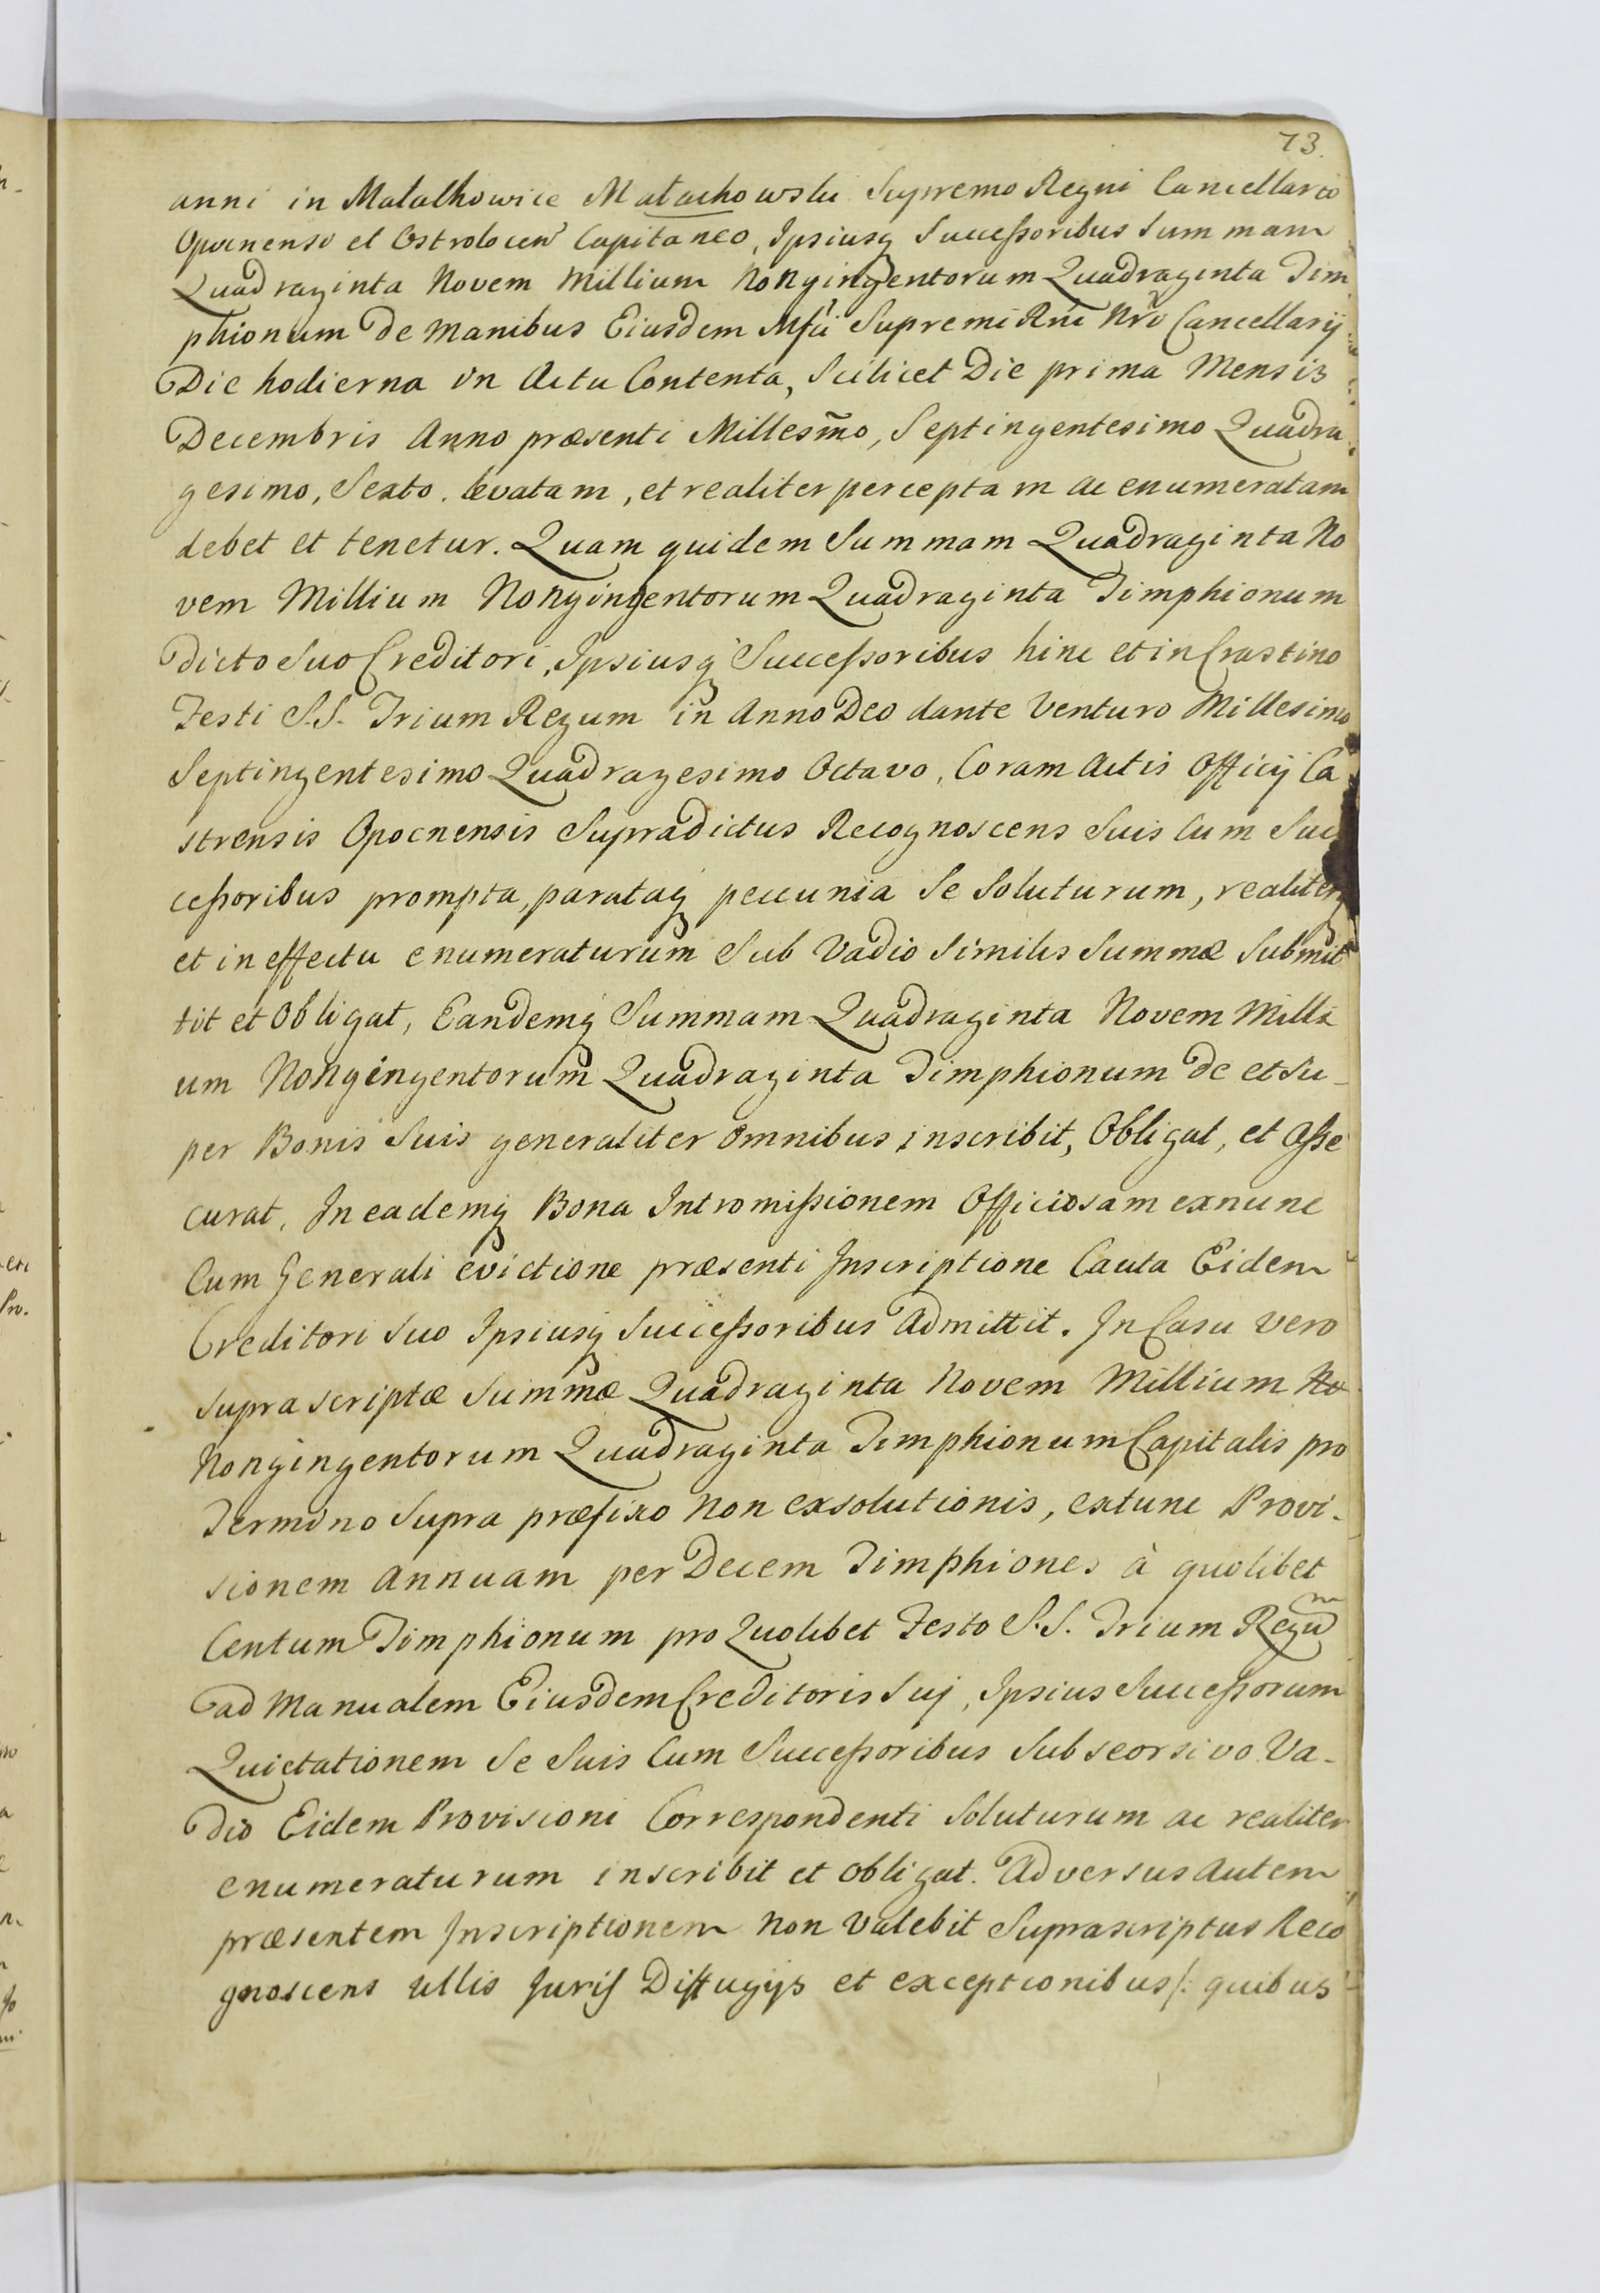 73.
anni in Malalhowice Małachowski Supremo Regni Cancellario
Opocnensi et Ostrolocen Capitaneo, Ipsiusq Successoribus Summam
Quadraginta Novem Millium Nongingentorum Quadraginta Tim
phionum De Manibus Eiusdem Mfci Supremi Rni Nri Cancellarij
Die hodierna in Actu Contenta, Scilicet Die prima Mensis
Decembris Anno præsenti Millesm̃o, Septingentesimo Quadra
gesimo, Sexto. levatam, et realiter perceptam ac enumeratam
debet et tenetur. Quam quidem Summam Quadraginta No
vem Millium Nongingentorum Quadraginta Timphionum
Dicto Suo Creditori, Ipsiusq Successoribus hinc et in Crastino
Festi S.S. Trium Regum in Anno Deo dante Venturo Millesimo
Septingentesimo Quadragesimo Octavo, Coram Actis Officij Ca
strensis Opocnensis Supradictus Recognoscens Suis Cum Suc
cessoribus prompta, parataq peccunia Se Soluturum, realiter
et in effectu enumeraturum Sub Vadio Similis Summæ Submit
tit et Obligat, Eandemq Summam Quadraginta Novem Milli
um Nongingentorum Quadraginta Timphionum De et Su-
per Bonis Suis generaliter omnibus inscribit, Obligat, et Asse
curat, In eademq Bona Intromissionem Officiosam exnunc
Cum Generali evictione præsenti Inscriptione Cauta Eidem
Creditori Suo Ipsiusq Successoribus Admittit. In Casu vero
supra scriptæ Summæ Quadraginta Novem Millium No
Nongingentorum Quadraginta Timphionum Capitalis pro
Termino Supra præfixo Non exsolutionis, extunc Provi-
sionem Annuam per Decem Timphiones à quolibet
Centum Timphionum pro Quolibet Festo S.S. Trium Regum
ad Manualem Eiusdem Creditoris Suj, Ipsius Successorum
Quietationem Se Suis Cum Successoribus Sub seorsivo Va-
dio Eidem Provisioni Correspondenti Soluturum ac realiter
enumeraturum inscribit et obligat. Adversus Autem
præsentem Inscriptionem Non Valebit Suprascriptus Reco
gnoscens ullis Juris Diffugijs et exceptionibus /: quibus